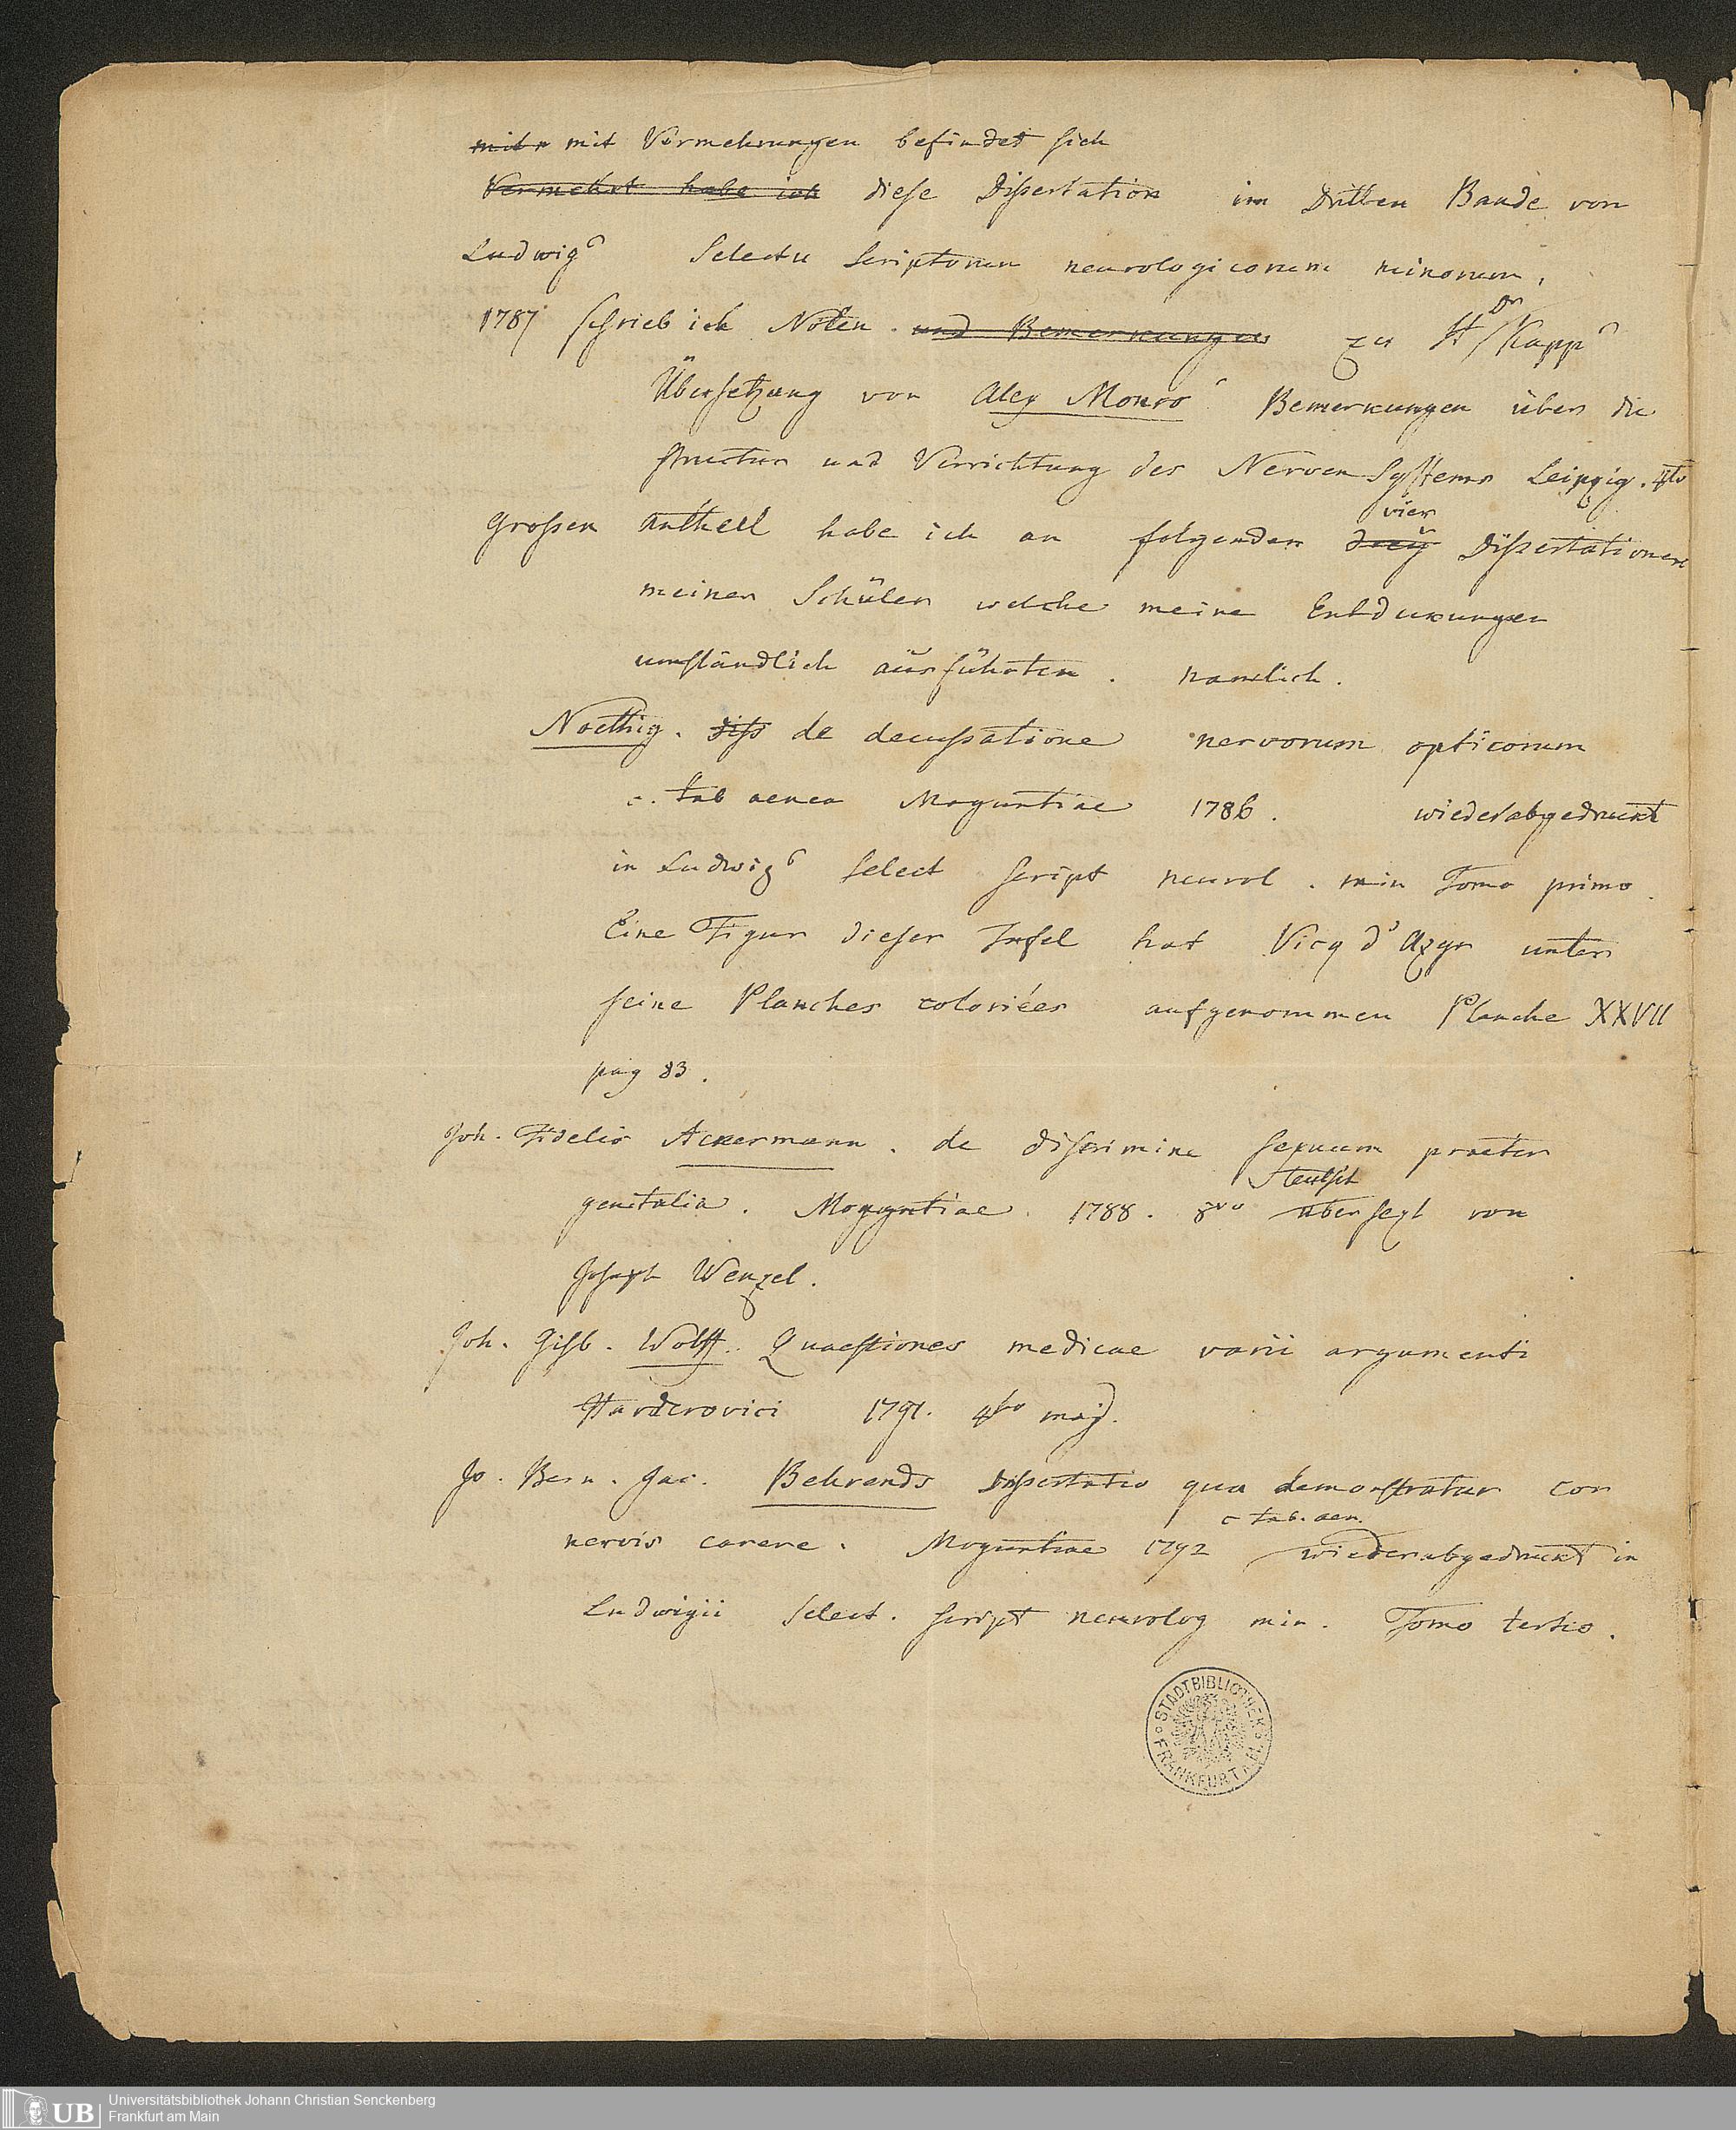 mit Vermehrungen befindet sich
Vermehrt habe ich diese Dissertation im Dritten Bande von
Ludwigs Selectu scriptorum neurologicorum minorum,
1787 schrieb ich Noten. und Bemerkungen zu H Dr Kapps
Übersetzung von Alex Monro's Bemerkungen über die
structur und Verrichtung des Nerven Systems Leipzig. 4to
vier
Grossen Antheil habe ich an folgenden drey Dissertationen
meiner Schüler welche meine Entdeckungen
umständlich ausführten. namlich.
Noethig. diss de decussatione nervorum opticorum
c. tab aenea Moguntiae 1786. wiederabgedruckt
in Ludwigs select script neurol. min Tomo primo.
Eine Figur dieser Tafel hat Vicq d'Azyr unter
seine Planches coloriées aufgenommen Planche XXVII
pag 83.
Joh. Fidelis Ackermann. de discrimine sexuum praeter
Teutsch
genitalia. Moguntiae. 1788. 8vo übersezt von
Joseph Wenzel.
Joh. Gisb. Wolff. Quaestiones medicae varii argumenti
Harderovici 1791. 4to maj.
Jo. Bern. Jac. Behrends Dissertatio qua demonstratur cor
c tab. aen.
nervis carere. Moguntiae 1792 wiederabgedruckt in
Ludwigii Select. script neurolog min. Tomo tertio.
STADTBIBLIOTHEK
FRANKFURT A. M.
UB
Universitätsbibliothek Johann Christian Senckenberg
Frankfurt am Main